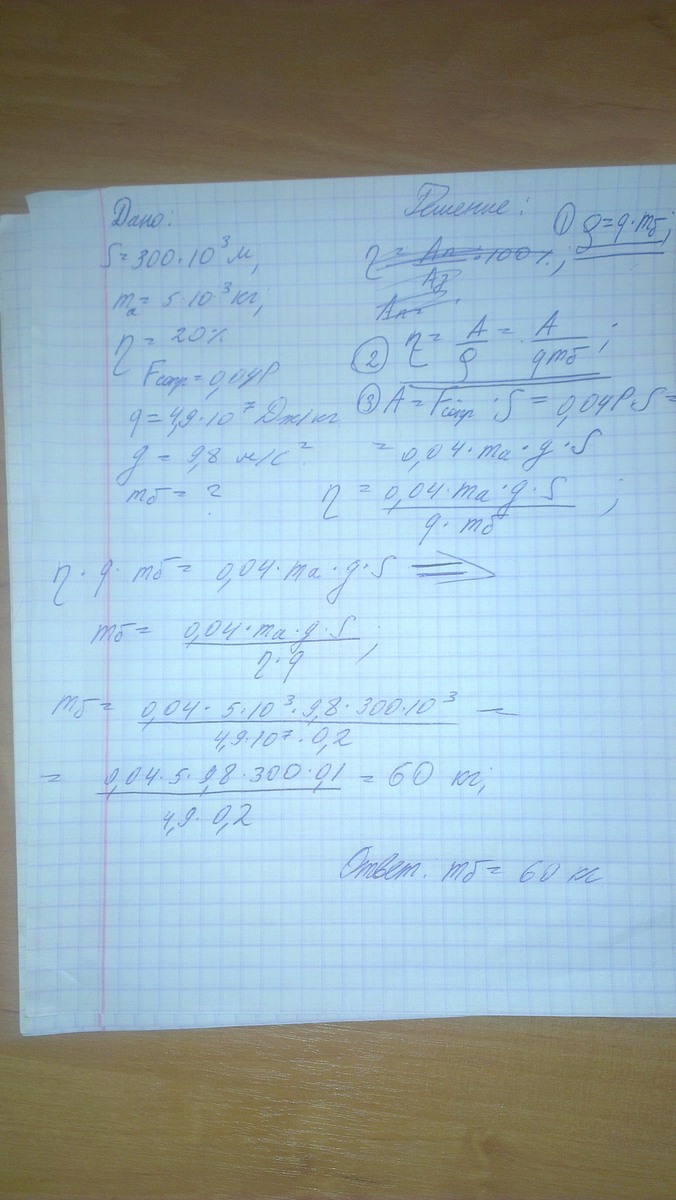 Дано:
S = 300·10³ м,
mₐ = 5·10³ кг;
η = 20%
Fсопр = 0,04P
q = 4,9·10⁷ Дж/кг
g = 9,8 м/с²
mб = ?
Решение:
① Q = q·mб;
η = Aп/Aз · 100%;
Aп =
② η = A/Q = A/qmб;
③ A = Fсопр·S = 0,04P·S =
= 0,04·ma·g·S
η = 0,04·ma·g·S / q·mб;
η·q·mб = 0,04·ma·g·S ⇒
mб = 0,04·ma·g·S / η·q;
mб = 0,04·5·10³·9,8·300·10³ / 4,9·10⁷·0,2 =
= 0,04·5·9,8·300·0,1 / 4,9·0,2 = 60 кг;
Ответ. mб = 60 кг